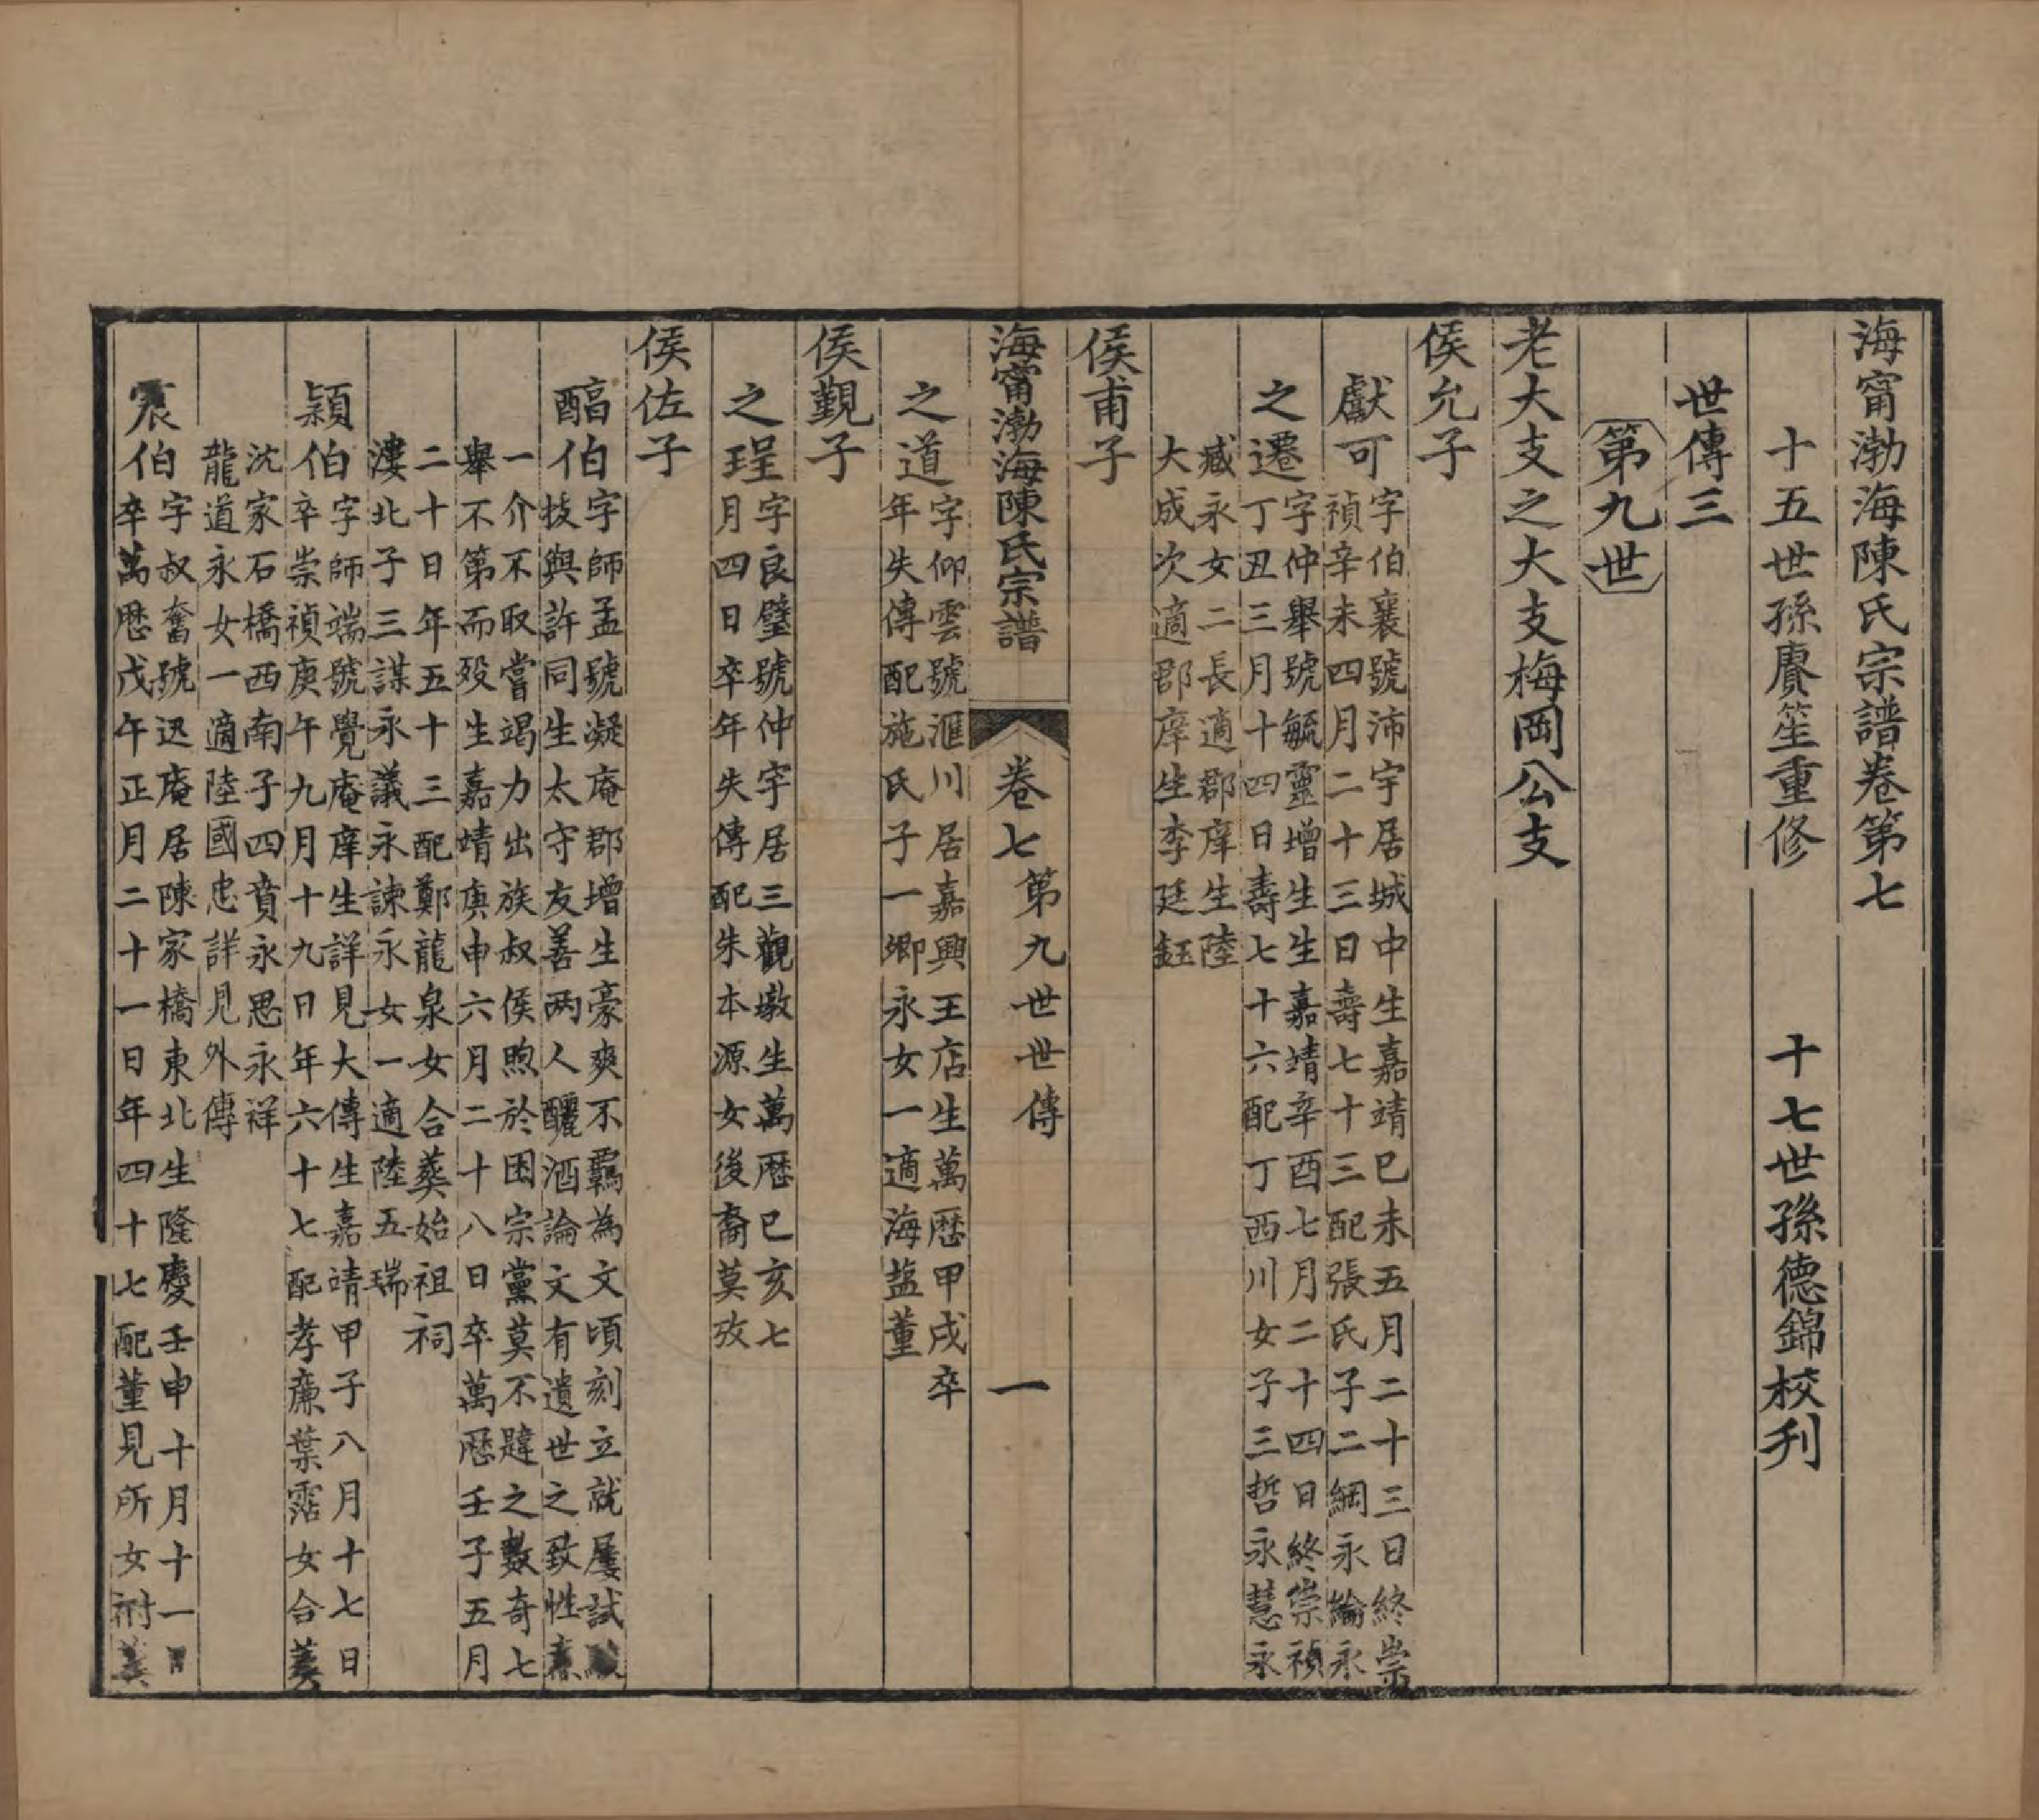 海甯渤海陳氏宗譜卷第七
十五世孫賡笙重修　十七世孫德錦校刋
世傳三
第九世
老大支之大支梅岡公支
侯允子
獻可
字伯襄號沛宇居城中生嘉靖己未五月二十三日終崇
禎辛未四月二十三日壽七十三配張氏子二綱永綸永
之遷
字仲舉號毓靈增生生嘉靖辛酉七月二十四日終崇禎
丁丑三月十四日壽七十六配丁西川女子三哲永慧永
臧永女二長適郡庠生陸
大成次適郡庠生李廷鈺
侯甫子
海甯渤海陳氏宗譜　卷七　第九世世傳　一
之道
字仰雲號滙川居嘉興王店生萬歷甲戌卒
年失傳配施氏子一卿永女一適海盐董
侯覲子
之珵
字良璧號仲宇居三觀墩生萬歷己亥七
月四日卒年失傳配朱本源女後裔莫攷
侯佐子
醕伯
字師孟號凝庵郡增生豪爽不羈為文頃刻立就屢試
技與許同生太守友善两人釃酒論文有遺世之致性
一介不取嘗竭力出族叔侯煦於困宗黨莫不韙之數奇七
舉不第而殁生嘉靖庚申六月二十八日卒萬歷壬子五月
二十日年五十三配鄭龍泉女合葬始祖祠
漊北子三謀永議永諫永女一適陸五瑞
潁伯
字師端號覺庵庠生詳見大傳生嘉靖甲子八月十七日
卒崇禎庚午九月十九日年六十七配孝廉葉霑女合葬
沈家石橋西南子四賁永思永祥
龍道永女一適陸國忠詳見外傳
宸伯
字叔奮號迅庵居陳家橋東北生隆慶壬申十月十一日
卒萬歷戊午正月二十一日年四十七配董見所女祔葬